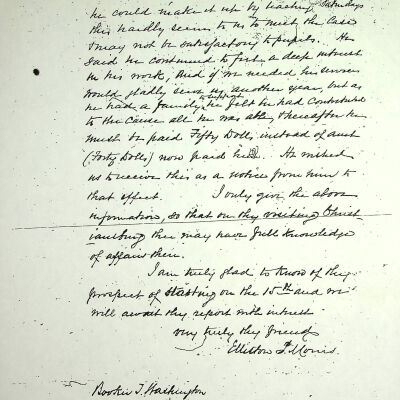 he could make it up by teaching Saturdays
this hardly seems to us to meet the case
& may not be satisfactory to pupils. He
said he continued to feel a deep interest
in his work, and if we needed his services
would gladly serve us another year, but as
he had a family to support he felt he had contributed
to the cause all he was able, & hereafter he
must be paid Fifty Dolls, instead of amt
(Forty Dolls) now paid him. He wished
us to receive this as a notice from him to
that effect. I only give the above
information, so that on thy visiting Christ
iansburg thee may have full knowledge
of affairs there.
I am truly glad to know of thy
prospect of starting on the 15th and we
will await thy report with interest
very truly thy friend
Elliston P. Morris.
Booker T. Washington